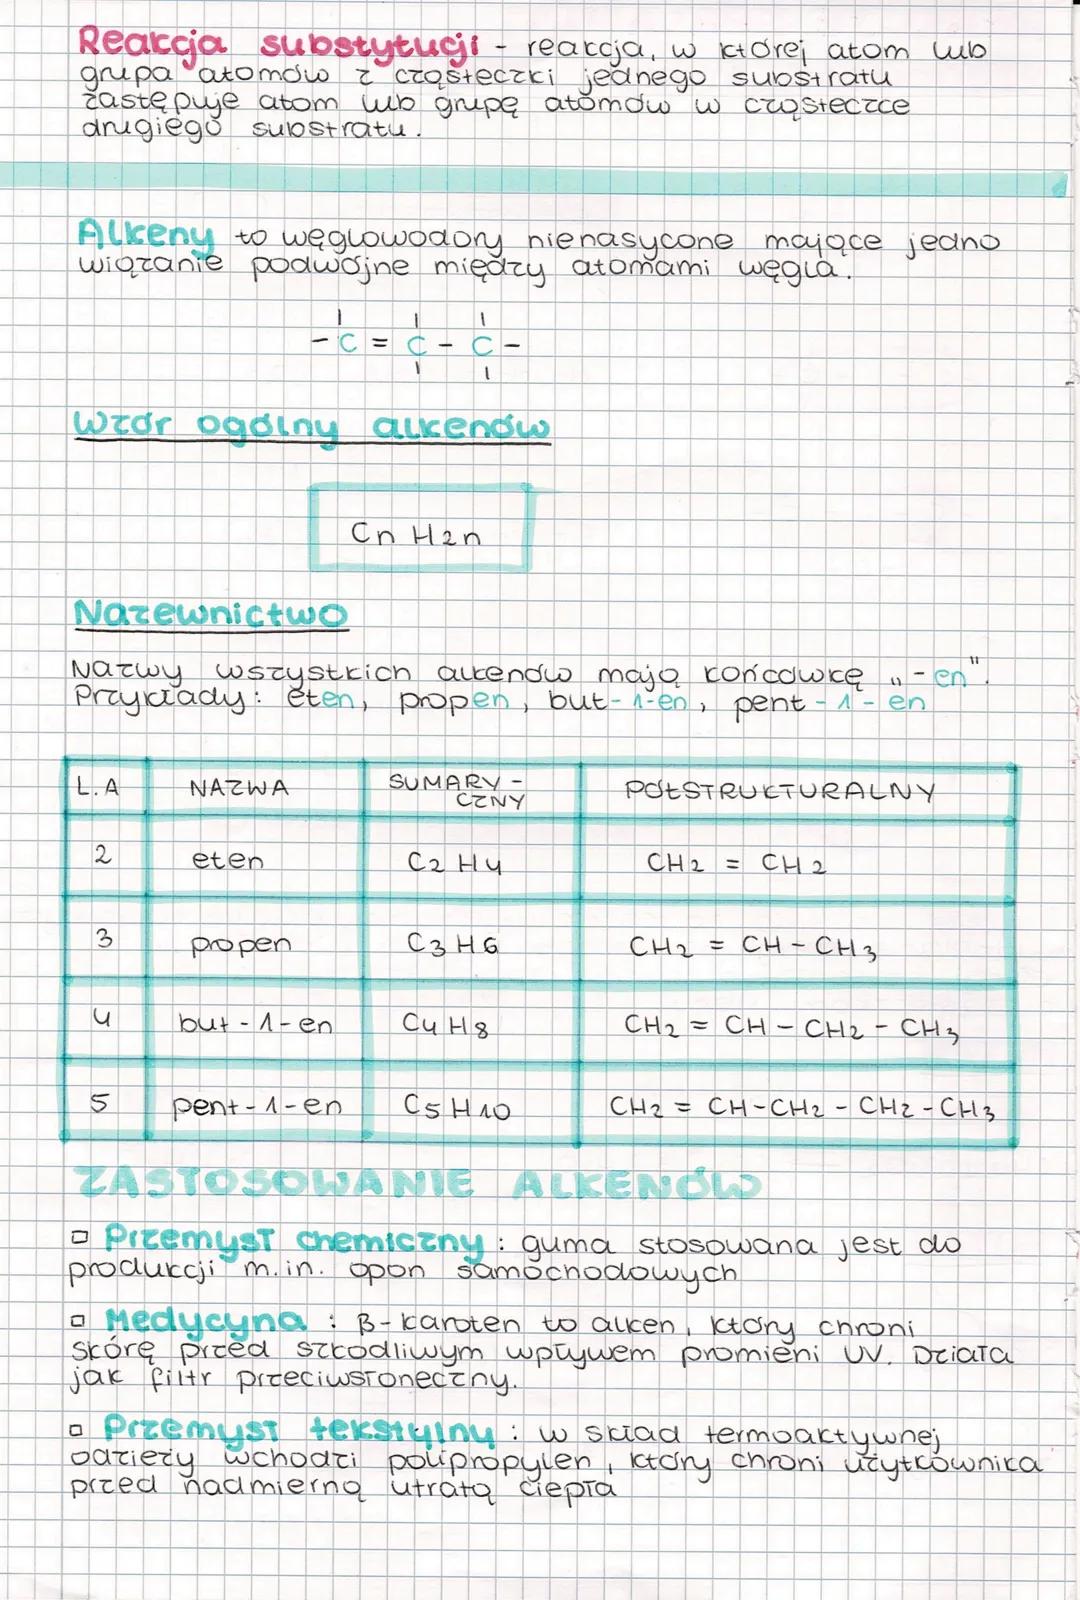 Reakcja substytucji - reakcja, w której atom lub
grupa atomów z cząsteczki jednego substratu
zastępuje atom lub grupę atomów w cząsteczce
drugiego substratu.
Alkeny to węglowodory nienasycone mające jedno
wiązanie podwójne między atomami węgla.
- C = C - C -
Wzór ogólny alkenów
Cn H2n
Nazewnictwo
Nazwy wszystkich alkenów mają końcówkę „-en".
Przykłady: eten, propen, but-1-en, pent-1-en
L.A NAZWA SUMARY- PÓŁSTRUKTURALNY
CZNY
2 eten C2 H4 CH2 = CH2
3 propen C3 H6 CH2 = CH - CH3
4 but-1-en C4 H8 CH2 = CH - CH2 - CH3
5 pent-1-en C5 H10 CH2 = CH-CH2 - CH2-CH3
ZASTOSOWANIE ALKENÓW
▫ Przemysł chemiczny : guma stosowana jest do
produkcji m.in. opon samochodowych
▫ Medycyna : β-karoten to alken, który chroni
skórę przed szkodliwym wpływem promieni UV. Działa
jak filtr przeciwsłoneczny.
▫ Przemysł tekstylny : w skład termoaktywnej
odzieży wchodzi polipropylen, który chroni użytkownika
przed nadmierną utratą ciepła